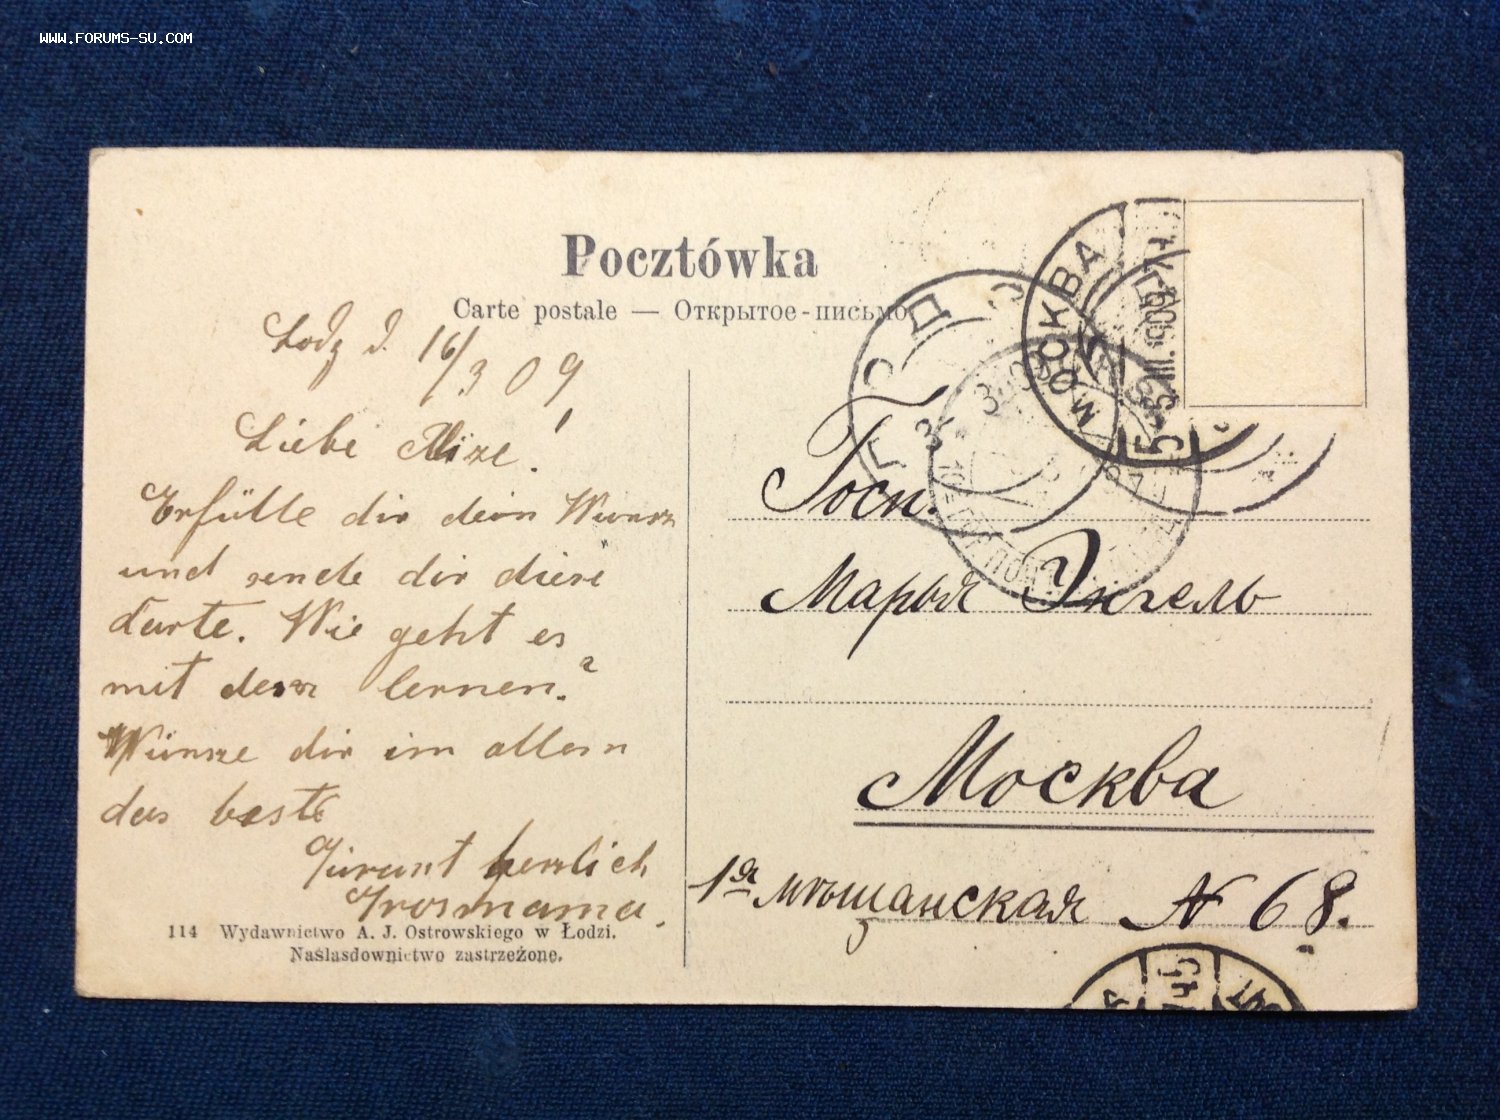 WWW.FORUMS-SU.COM
Pocztówka
Carte postale — Открытое-письмо
Lodz d. 16/3 09
Liebe Alize!
Erfülle dir dein Wunsz
und sende dir diese
Carte. Wie geht es
mit dem lernen?
Wünsze dir im allem
das beste
herzlich
Grosmama.
114 Wydawnictwo A. J. Ostrowskiego w Łodzi.
Naślasdownictwo zastrzeżone.
МОСКВА
5-5.III.1909.7
Госп.
Марья Энгель
Москва
1ая мѣщанская № 68.